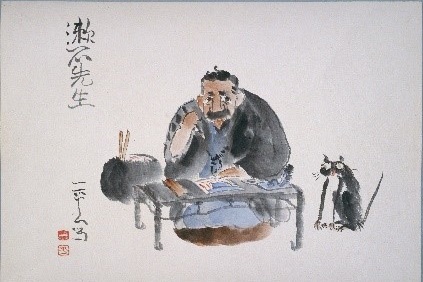 漱石先生
一平写